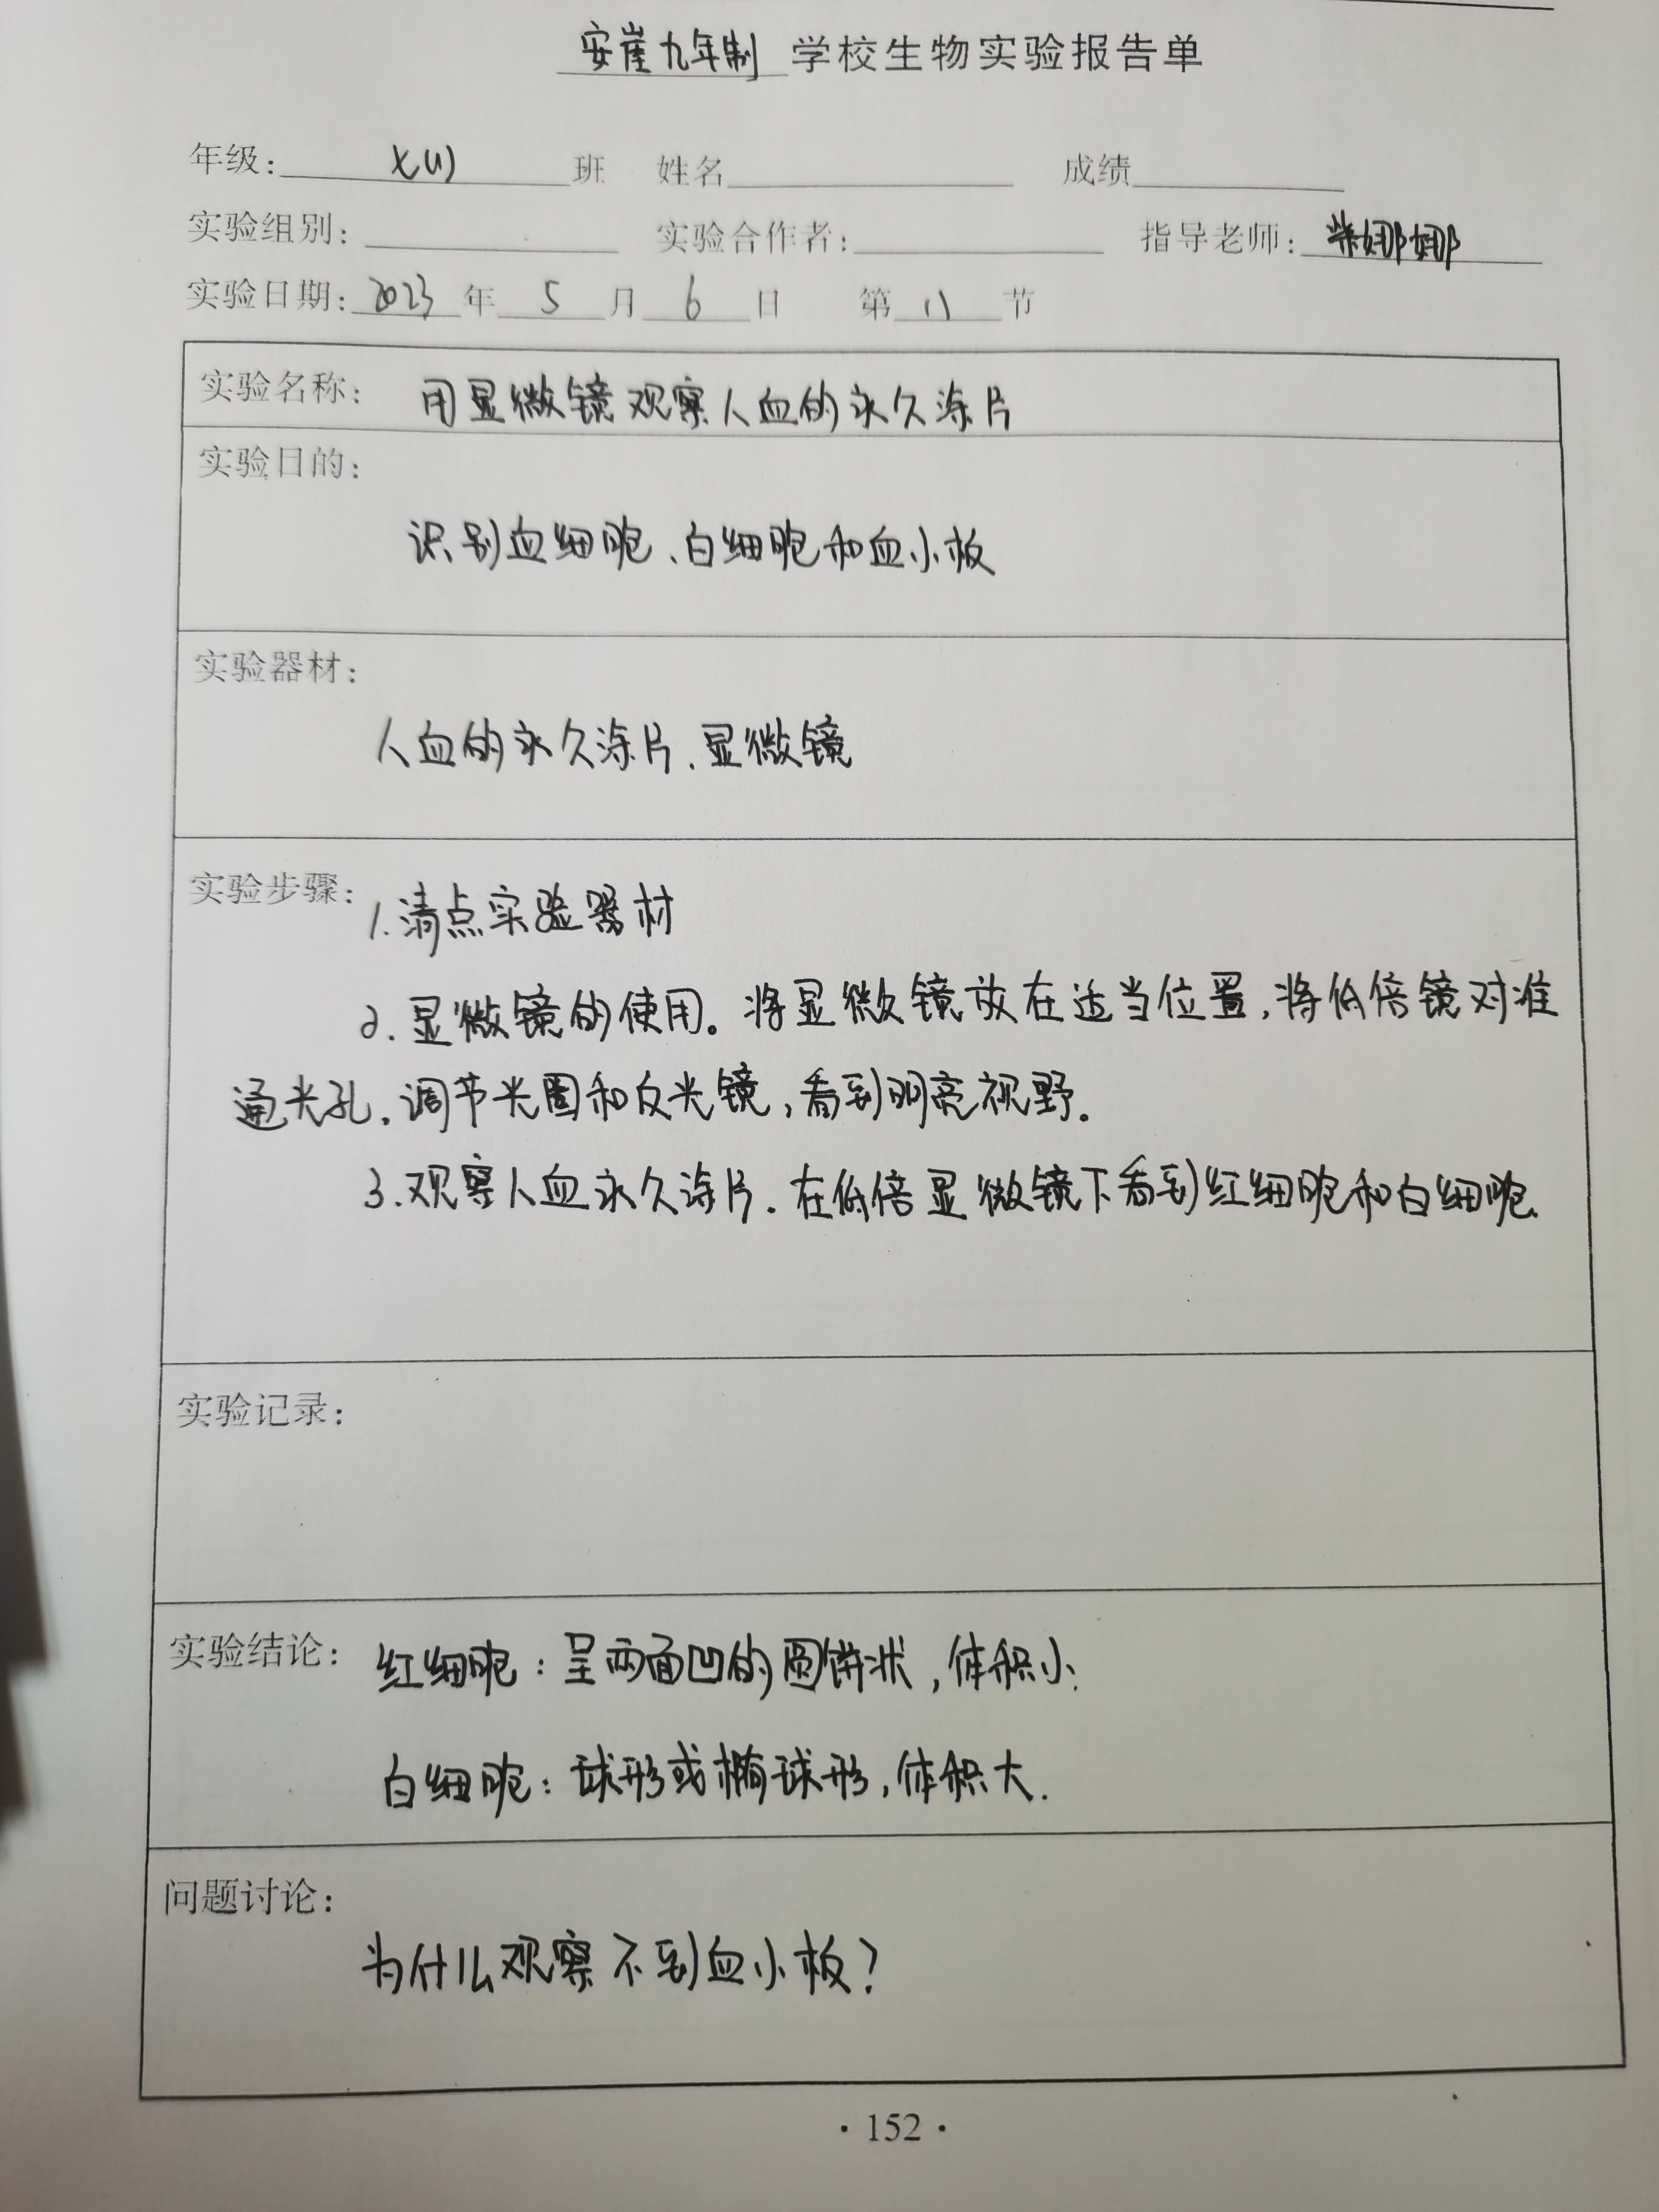 安崖九年制 学校生物实验报告单
年级: 七(1) 班 姓名 成绩
实验组别: 实验合作者: 指导老师: 柴娜娜
实验日期: 2023 年 5 月 6 日 第 节
实验名称: 用显微镜观察人血的永久涂片
实验目的:
识别血细胞、白细胞和血小板
实验器材:
人血的永久涂片、显微镜
实验步骤: 1.清点实验器材
2.显微镜的使用。将显微镜放在适当位置,将低倍镜对准
通光孔,调节光圈和反光镜,看到明亮视野。
3.观察人血永久涂片.在低倍显微镜下看到红细胞和白细胞.
实验记录:
实验结论: 红细胞:呈两面凹的圆饼状,体积小;
白细胞:球形或椭球形,体积大.
问题讨论:
为什么观察不到血小板?
·152·